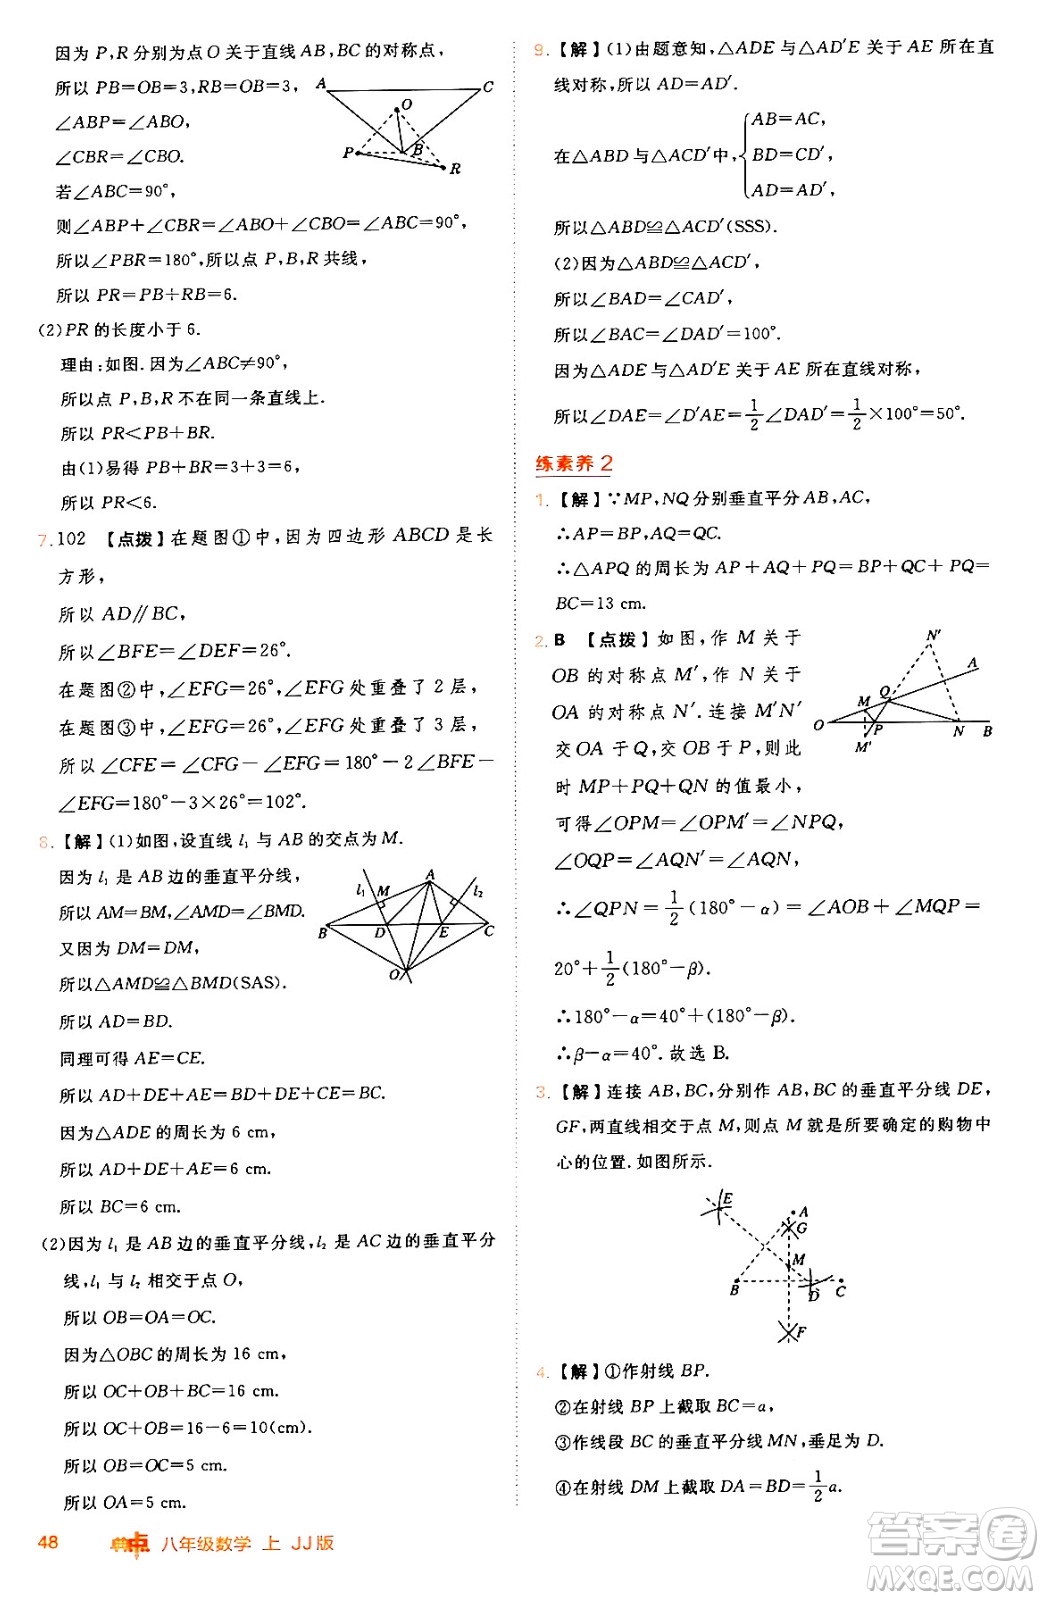 因为 P,R 分别为点 O 关于直线 AB,BC 的对称点,
所以 PB=OB=3,RB=OB=3,
∠ABP=∠ABO,
∠CBR=∠CBO.
若∠ABC=90°,
则∠ABP+∠CBR=∠ABO+∠CBO=∠ABC=90°,
所以∠PBR=180°,所以点 P,B,R 共线,
所以 PR=PB+RB=6.
(2)PR 的长度小于 6.
理由:如图.因为∠ABC≠90°,
所以点 P,B,R 不在同一条直线上.
所以 PR<PB+BR.
由(1)易得 PB+BR=3+3=6,
所以 PR<6.
A
C
O
P
B
R
7. 102 【点拨】在题图①中,因为四边形 ABCD 是长
方形,
所以 AD∥BC,
所以∠BFE=∠DEF=26°.
在题图②中,∠EFG=26°,∠EFG 处重叠了 2 层,
在题图③中,∠EFG=26°,∠EFG 处重叠了 3 层,
所以∠CFE=∠CFG-∠EFG=180°-2∠BFE-
∠EFG=180°-3×26°=102°.
8. 【解】(1)如图,设直线 l₁ 与 AB 的交点为 M.
因为 l₁ 是 AB 边的垂直平分线,
所以 AM=BM,∠AMD=∠BMD.
又因为 DM=DM,
所以△AMD≌△BMD(SAS).
所以 AD=BD.
同理可得 AE=CE.
所以 AD+DE+AE=BD+DE+CE=BC.
因为△ADE 的周长为 6 cm,
所以 AD+DE+AE=6 cm.
所以 BC=6 cm.
(2)因为 l₁ 是 AB 边的垂直平分线,l₂ 是 AC边的垂直平分
线,l₁ 与 l₂ 相交于点 O,
所以 OB=OA=OC.
因为△OBC 的周长为 16 cm,
所以 OC+OB+BC=16 cm.
所以 OC+OB=16-6=10(cm).
所以 OB=OC=5 cm.
所以 OA=5 cm.
l₁
M
A
l₂
B
D
E
C
O
9. 【解】(1)由题意知,△ADE 与△AD′E 关于 AE 所在直
线对称,所以 AD=AD′.
在△ABD 与△ACD′中,{AB=AC,
BD=CD′,
AD=AD′,
所以△ABD≌△ACD′(SSS).
(2)因为△ABD≌△ACD′,
所以∠BAD=∠CAD′,
所以∠BAC=∠DAD′=100°.
因为△ADE 与△AD′E 关于 AE 所在直线对称,
所以∠DAE=∠D′AE=1/2∠DAD′=1/2×100°=50°.
练素养 2
1. 【解】∵MP,NQ 分别垂直平分 AB,AC,
∴AP=BP,AQ=QC.
∴△APQ 的周长为 AP+AQ+PQ=BP+QC+PQ=
BC=13 cm.
2. B 【点拨】如图,作 M 关于
OB 的对称点 M′,作 N 关于
OA 的对称点 N′.连接 M′N′
交 OA 于 Q,交 OB 于 P,则此
时 MP+PQ+QN 的值最小,
可得∠OPM=∠OPM′=∠NPQ,
∠OQP=∠AQN′=∠AQN,
∴∠QPN=1/2(180°-α)=∠AOB+∠MQP=
20°+1/2(180°-β).
∴180°-α=40°+(180°-β).
∴β-α=40°.故选 B.
N′
A
Q
M
O
P
N
B
M′
3. 【解】连接 AB,BC,分别作 AB,BC 的垂直平分线 DE,
GF,两直线相交于点 M,则点 M 就是所要确定的购物中
心的位置.如图所示.
E
A
G
M
B
D
C
F
4. 【解】①作射线 BP.
②在射线 BP 上截取 BC=a,
③作线段 BC 的垂直平分线 MN,垂足为 D.
④在射线 DM 上截取 DA=BD=1/2a.
48 典中点 八年级数学 上 JJ版
答案圈
MXQE.COM